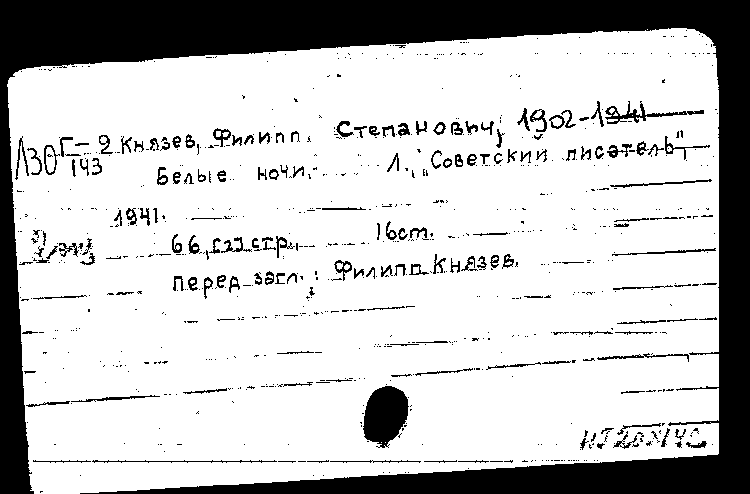 Л30 Г-2/143 Князев, Филипп Степанович, 1902-1941
Белые ночи. Л., „Советский писатель",
1941.
2 экз 66,[2] стр. 16 cm.
Перед загл.: Филипп Князев.